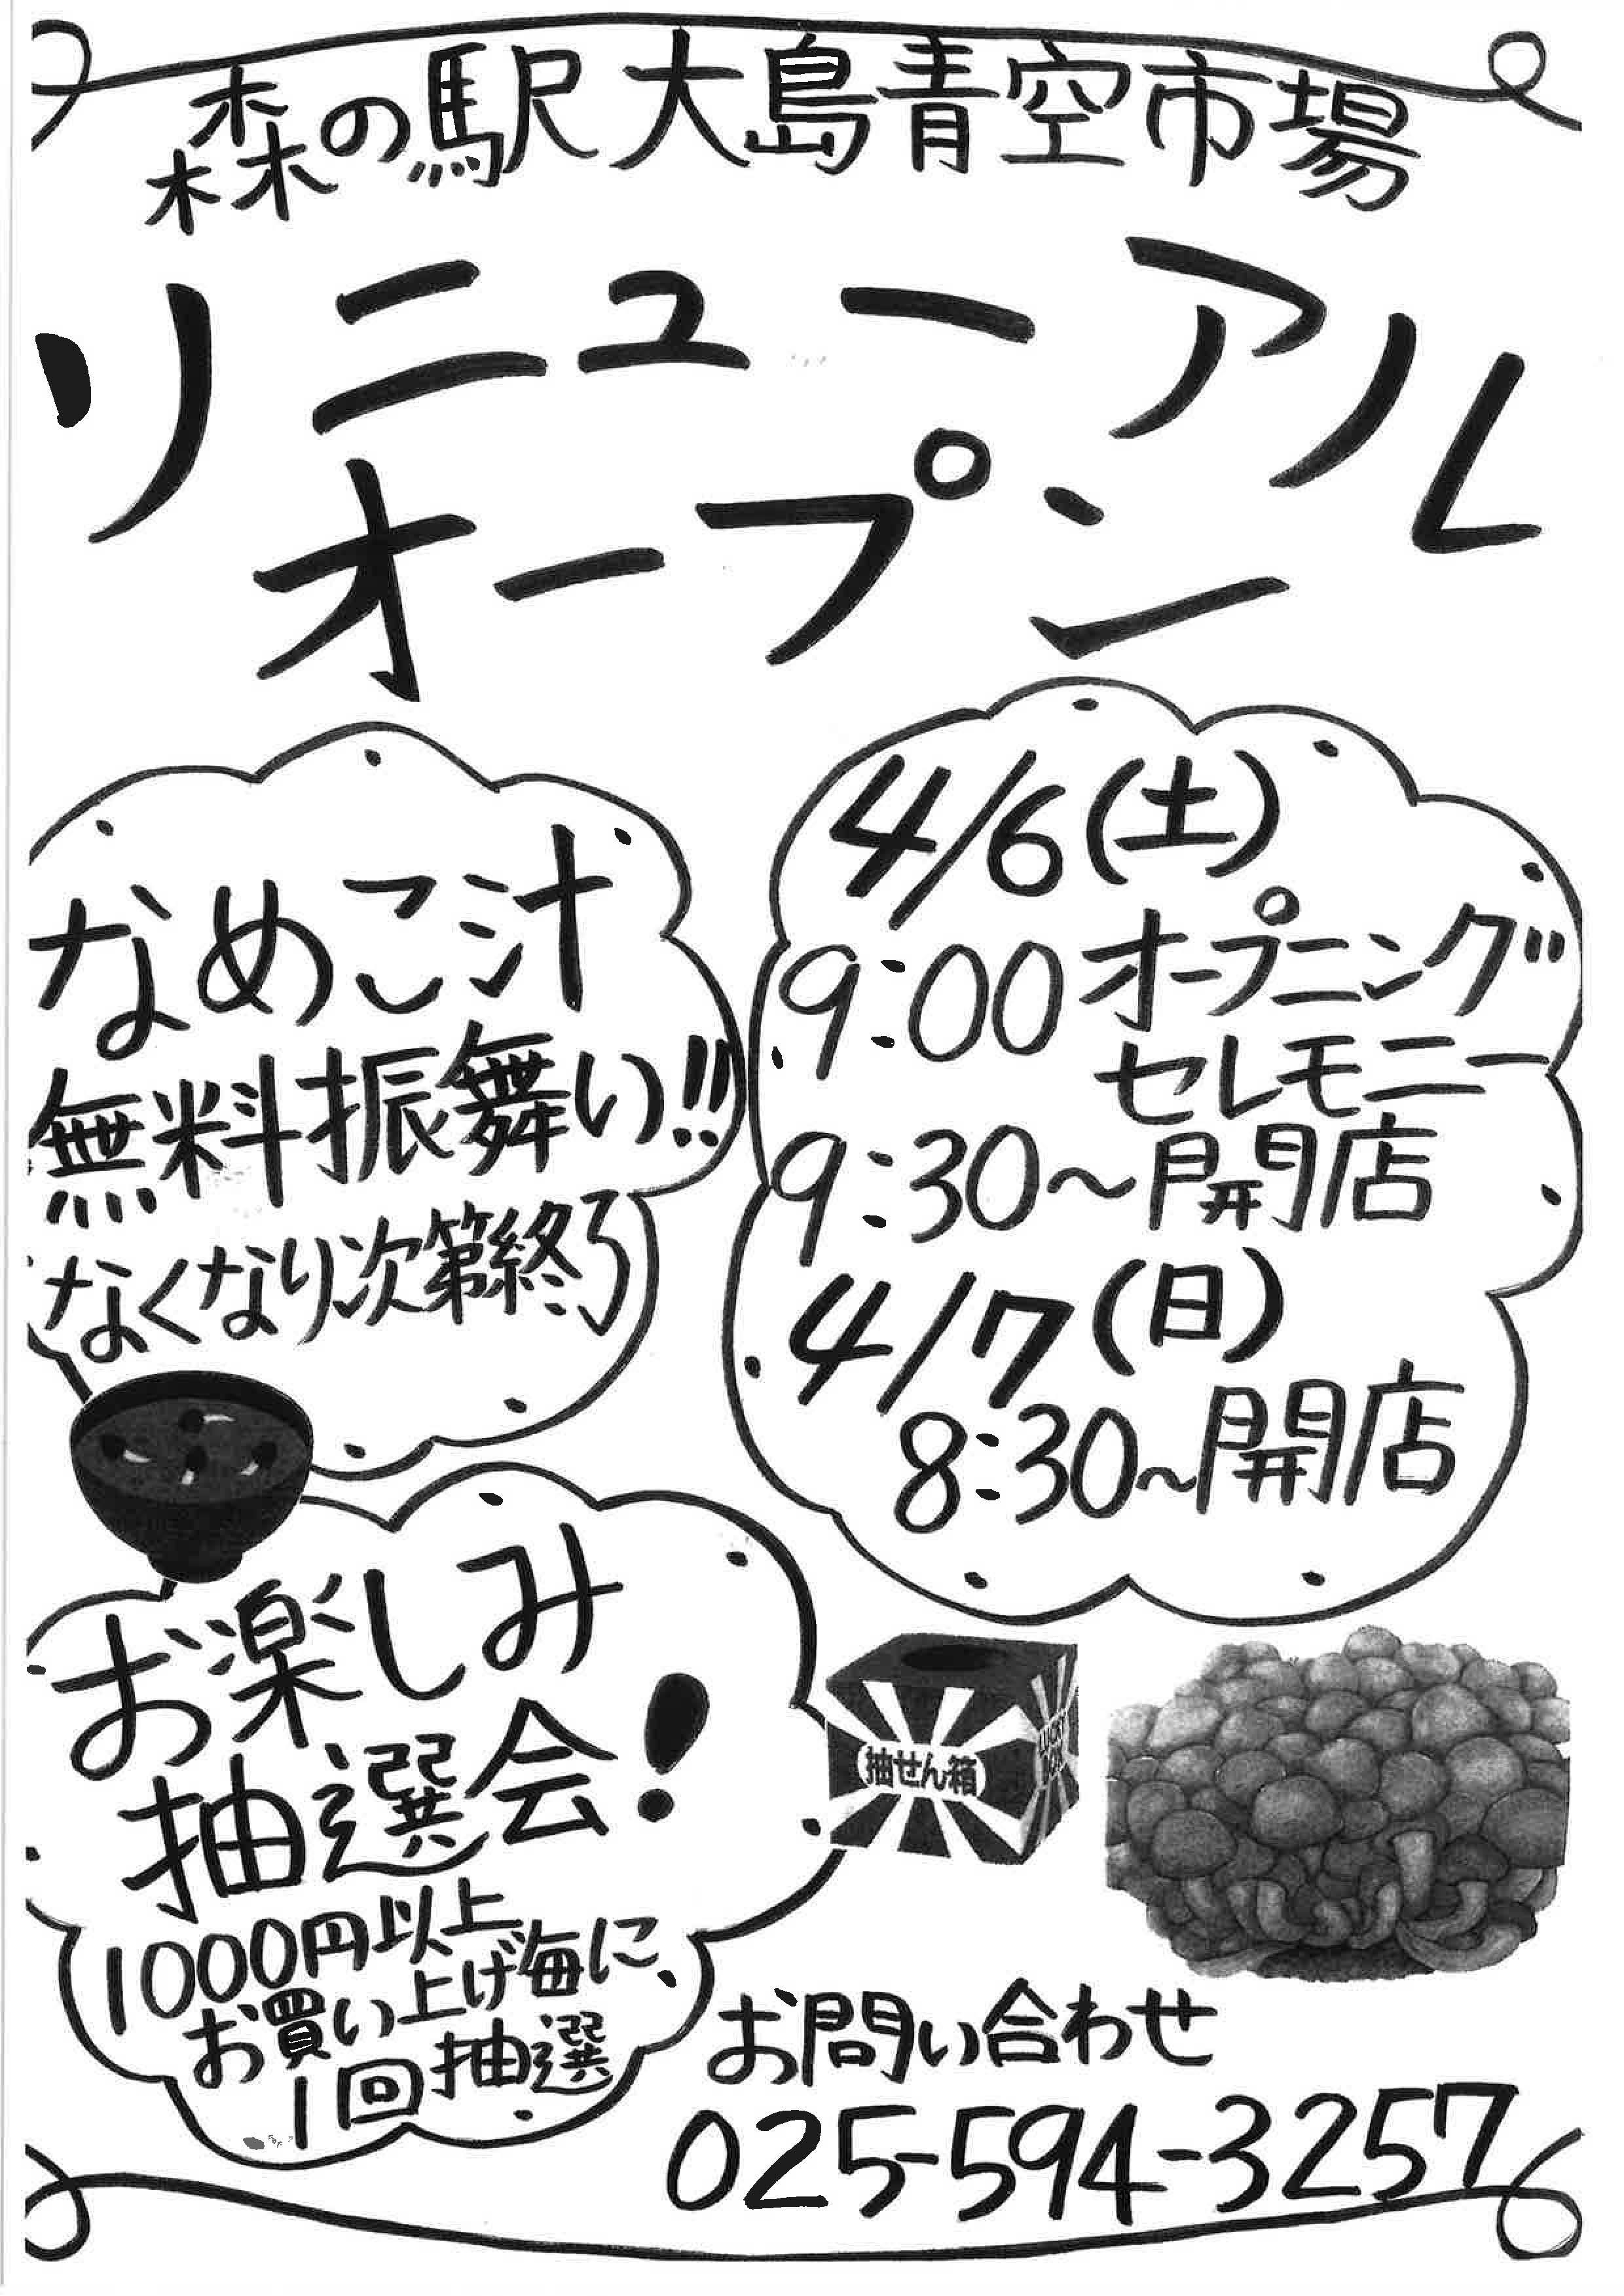 森の駅大島青空市場
リニューアル
オープン
4/6(土)
9:00 オープニング
セレモニー
9:30〜開店
4/7(日)
8:30〜開店
なめこ汁
無料振舞い!!
なくなり次第終了
お楽しみ
抽選会!
1000円以上
お買い上げ毎に、
1回抽選
抽せん箱
LUCKY
BOX
お問い合わせ
025-594-3257